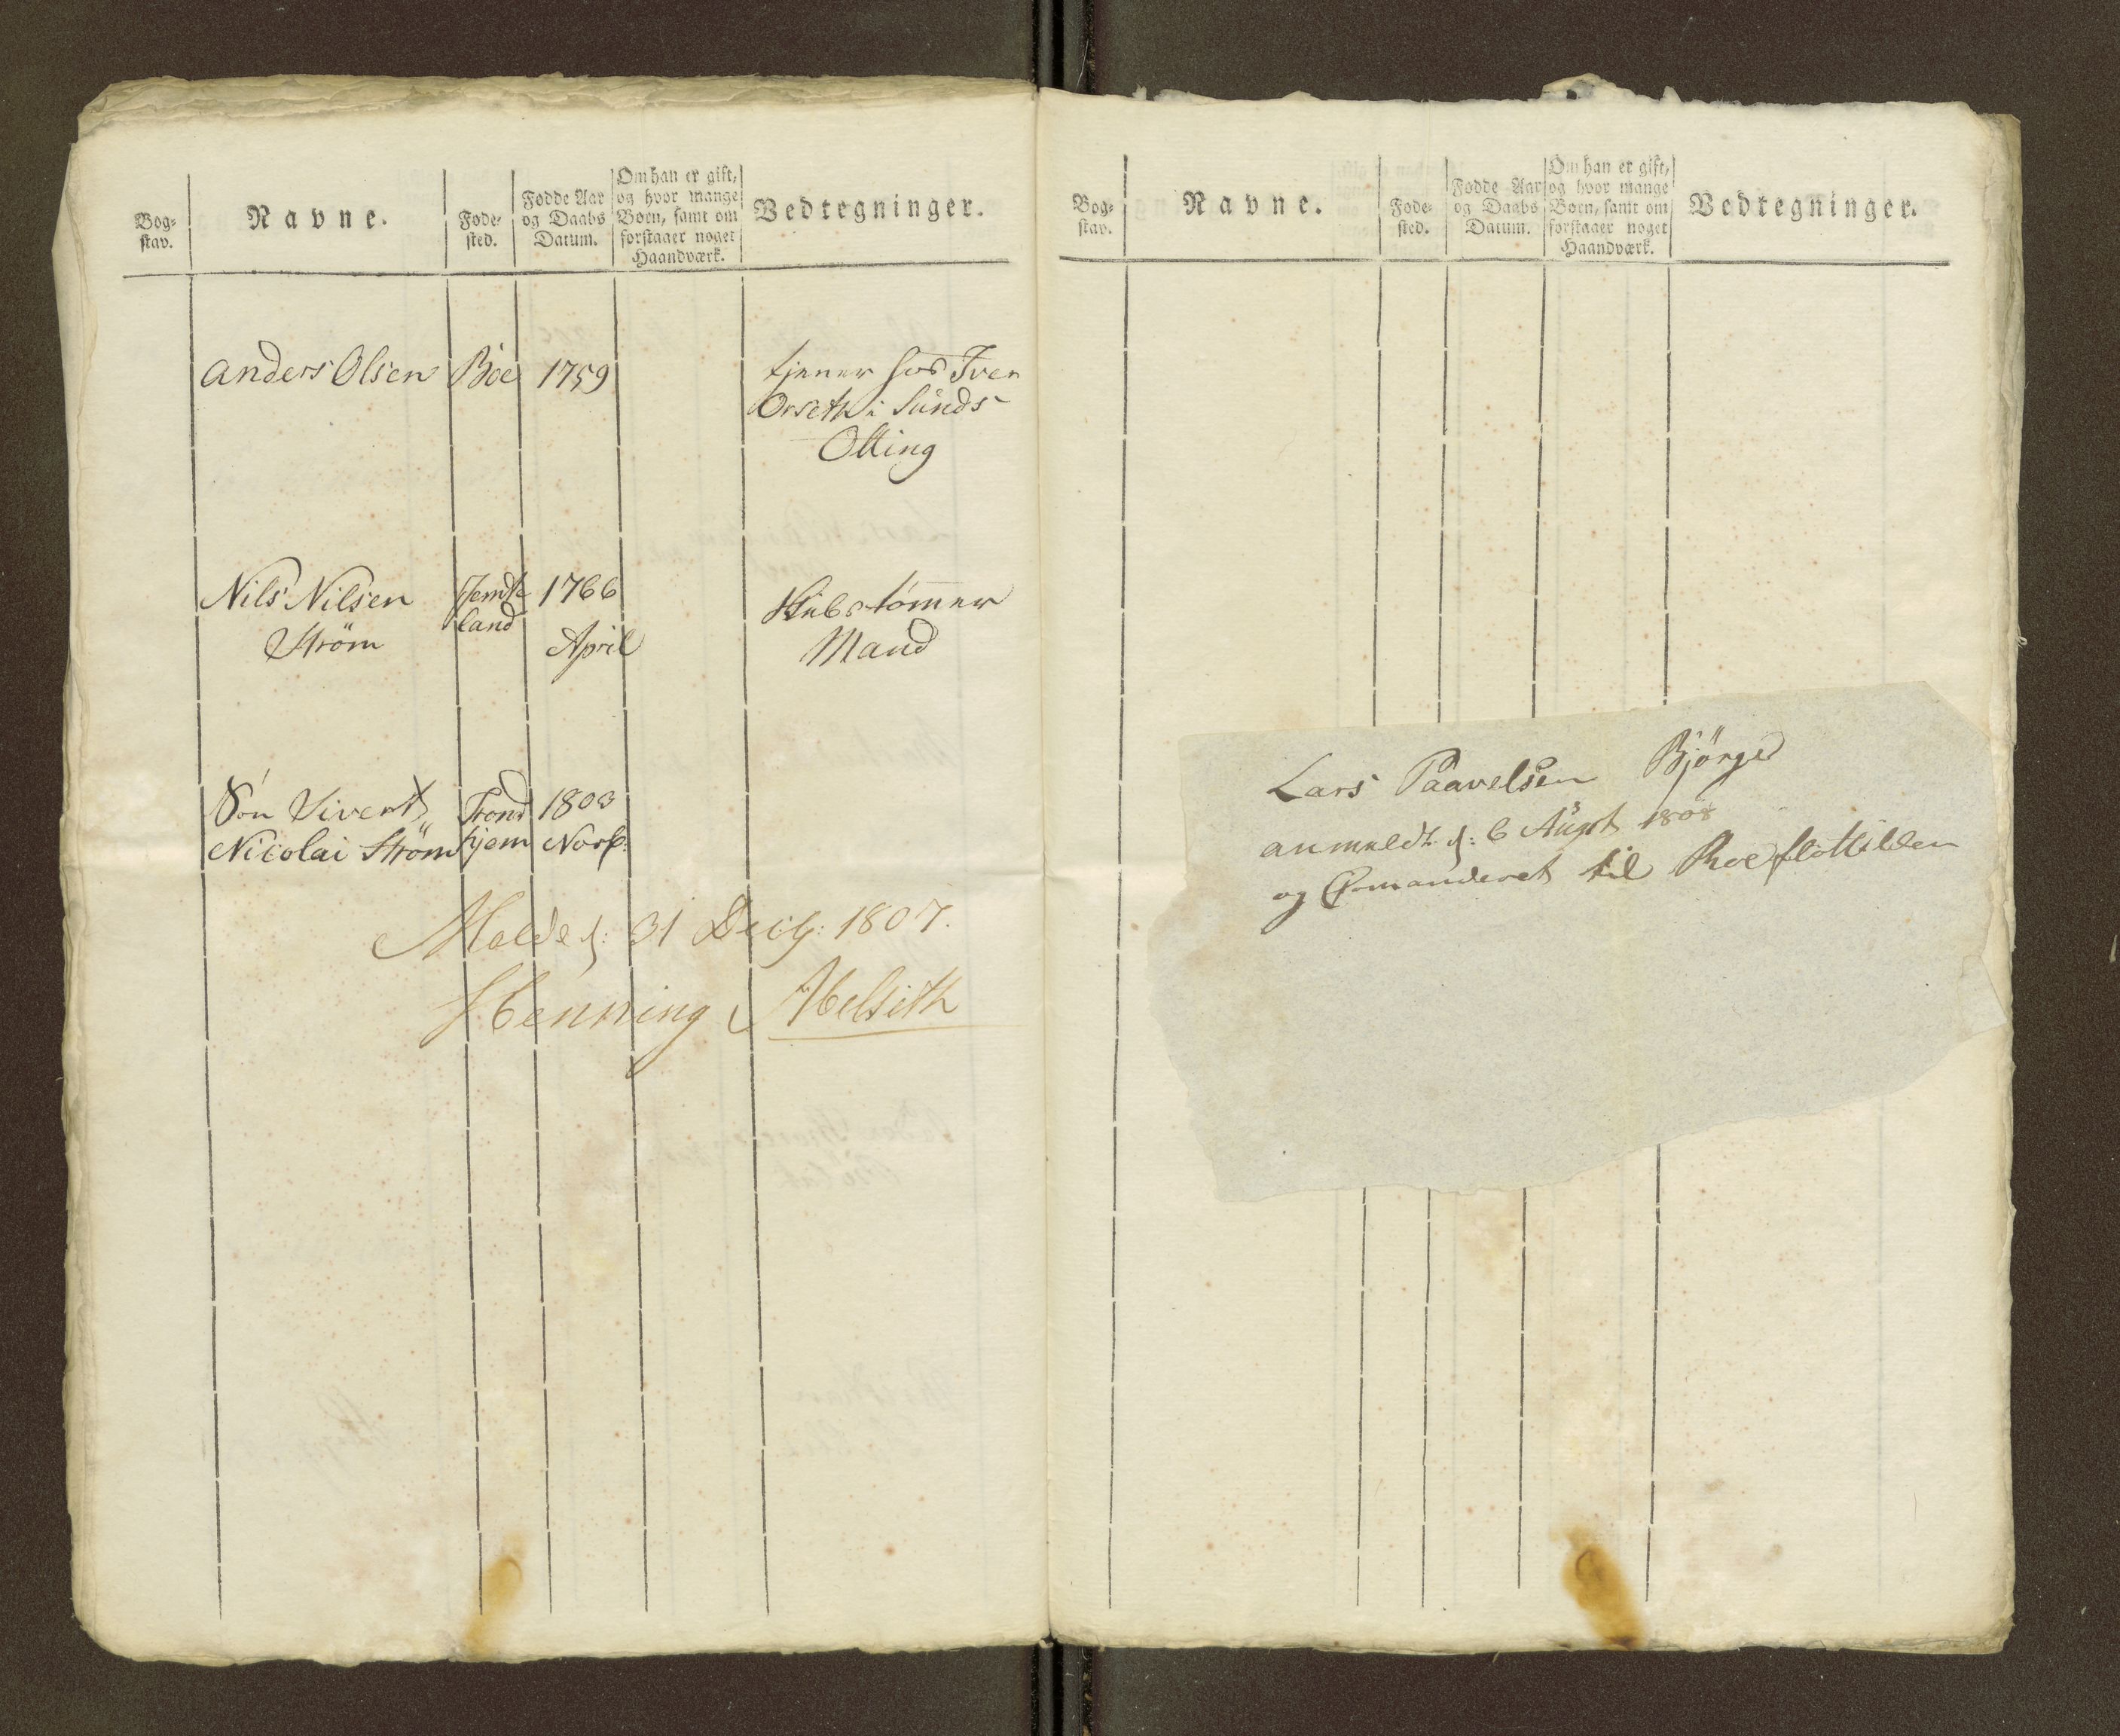 Bog-
stav.
Navne.
Føde-
sted.
Fødde Aar
og Daabs
Datum.
Om han er gift,
og hvor mange
Børn, samt om
forstaaer noget
Haandværk.
Vedtegninger.
Anders Olsen Böe 1759 tjener hos Iver
Orseth i Sunds
Otting
Nils Nilsen Jemte 1766 Skibstömmer
Ström land April Mand
Sön Sivert Trond 1803
Nicolai Ström hjem Novb:
Molde d: 31 Decbr: 1807.
Henning Abelseth
Bog-
stav.
Navne.
Føde-
sted.
Fødde Aar
og Daabs
Datum.
Om han er gift,
og hvor mange
Børn, samt om
forstaaer noget
Haandværk.
Vedtegninger.
Lars Paavelsen Björge
anmeldt d: 6 Augst 1808
og Commanderet til Roeflottilden